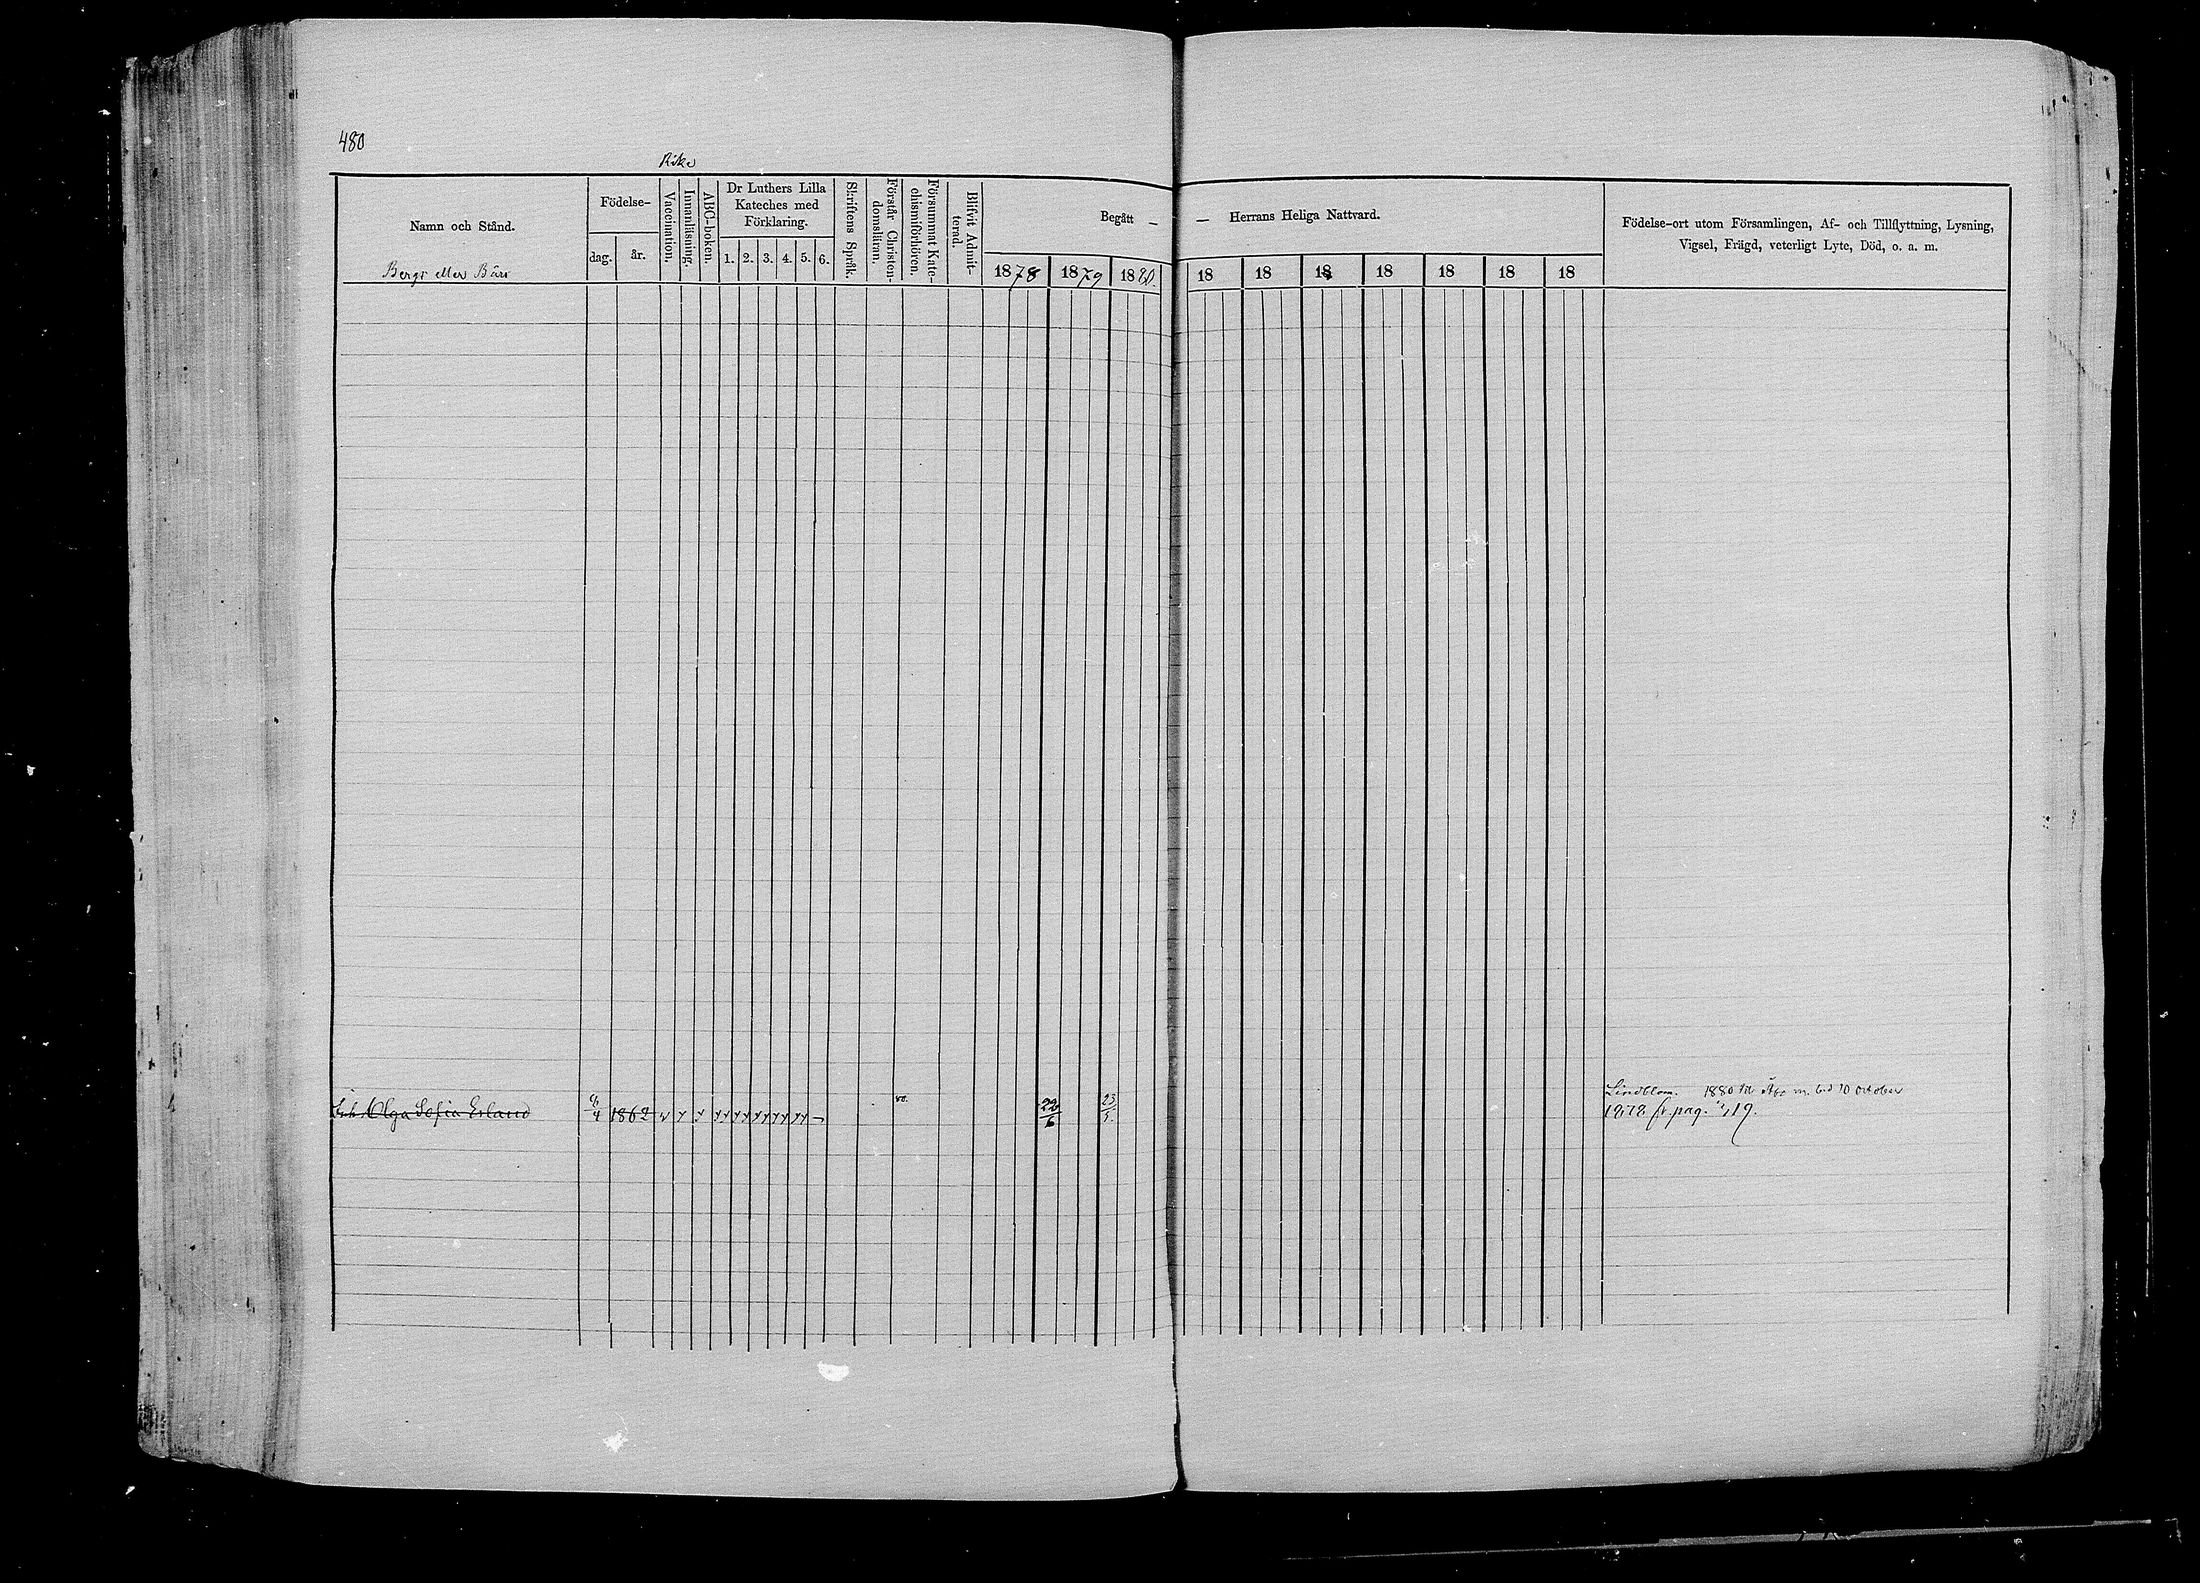 480
Rike
Namn och Stånd.
Födelse-
dag. år.
Vaccination.
Innanläsning.
ABC-boken.
Dr Luthers Lilla
Kateches med
Förklaring.
1. 2. 3. 4. 5. 6.
Skriftens Språk.
Förstår Christen-
domsläran.
Försummat Kate-
chismiförhören.
Blifvit Admit-
terad.
Begått — — Herrans Heliga Nattvard.
1878 1879 1880. 18 18 18 18 18 18 18
Födelse-ort utom Församlingen, Af- och Tillflyttning, Lysning,
Vigsel, Frägd, veterligt Lyte, Död, o. a. m.
Bergs eller Bärs
Lindblom. 1880 till Åbo m. bd 10 October
Olga Sofia Erland 4 1862 80. 22/6 23/5. 1878 fr. pag.